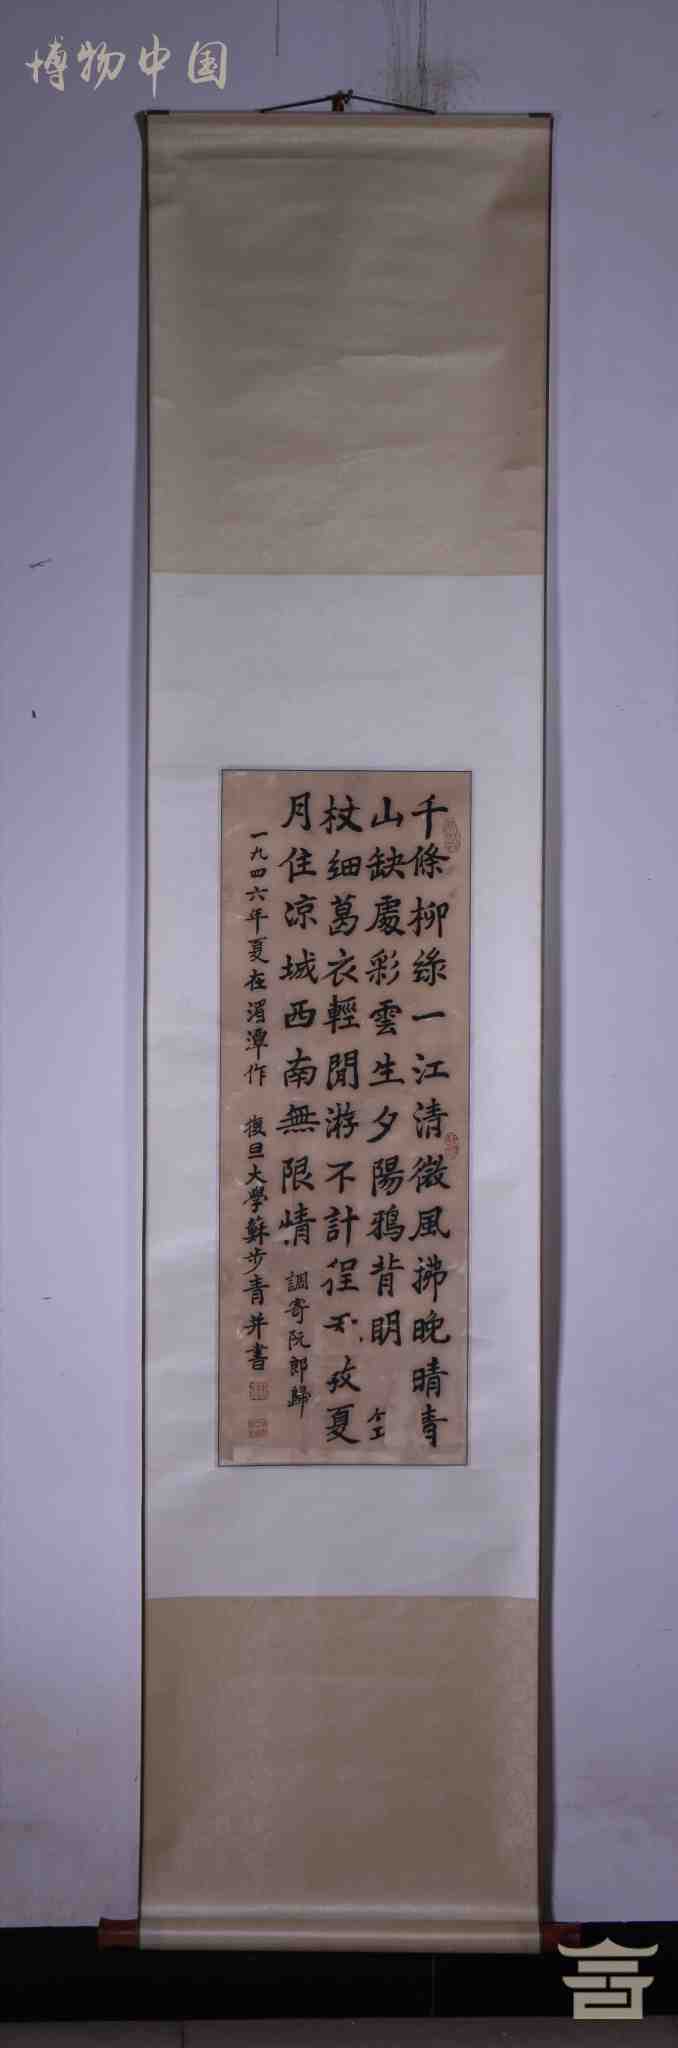 博物中国
千條柳綠一江清微風拂晚晴青
山缺處彩雲生夕陽鴉背明
杖細葛衣輕閒游不計程夏
月住涼城西南無限情 調寄阮郎歸
一九四六年夏在湄潭作 復旦大學蘇步青并書